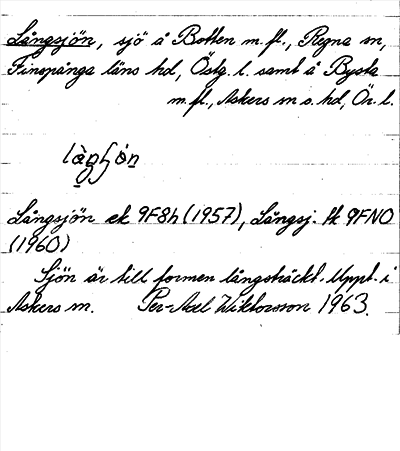 Långsjön, sjö å Botten m.fl., Regna sn,
Finspånga läns hd, Östg. l. samt å Bysta
m.fl., Askers sn o. hd, Ör. l.
Långsjön ek 9F8h (1957), Långsj. tk 9FNO
(1960)
Sjön är till formen långsträckt. Uppt. i
Askers sn. Per-Axel Wiktorsson 1963.